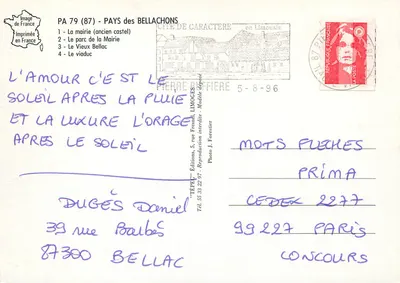 Image
de France
Imprimée
en France
PA 79 (87) - PAYS des BELLACHONS
1 - La mairie (ancien castel)
2 - Le parc de la Mairie
3 - Le Vieux Bellac
4 - Le viaduc
CITE DE CARACTERE
en Limousin
PIERRE BUFFIERE 5-8-96
L'AMOUR C'EST LE
SOLEIL APRES LA PLUIE
ET LA LUXURE L'ORAGE
APRES LE SOLEIL
DUGÈS Daniel
39 rue Barbès
87300 BELLAC
Photo J. Forestier
MOTS FLECHES
PRIMA
CEDEX 2277
99227 PARIS
CONCOURS